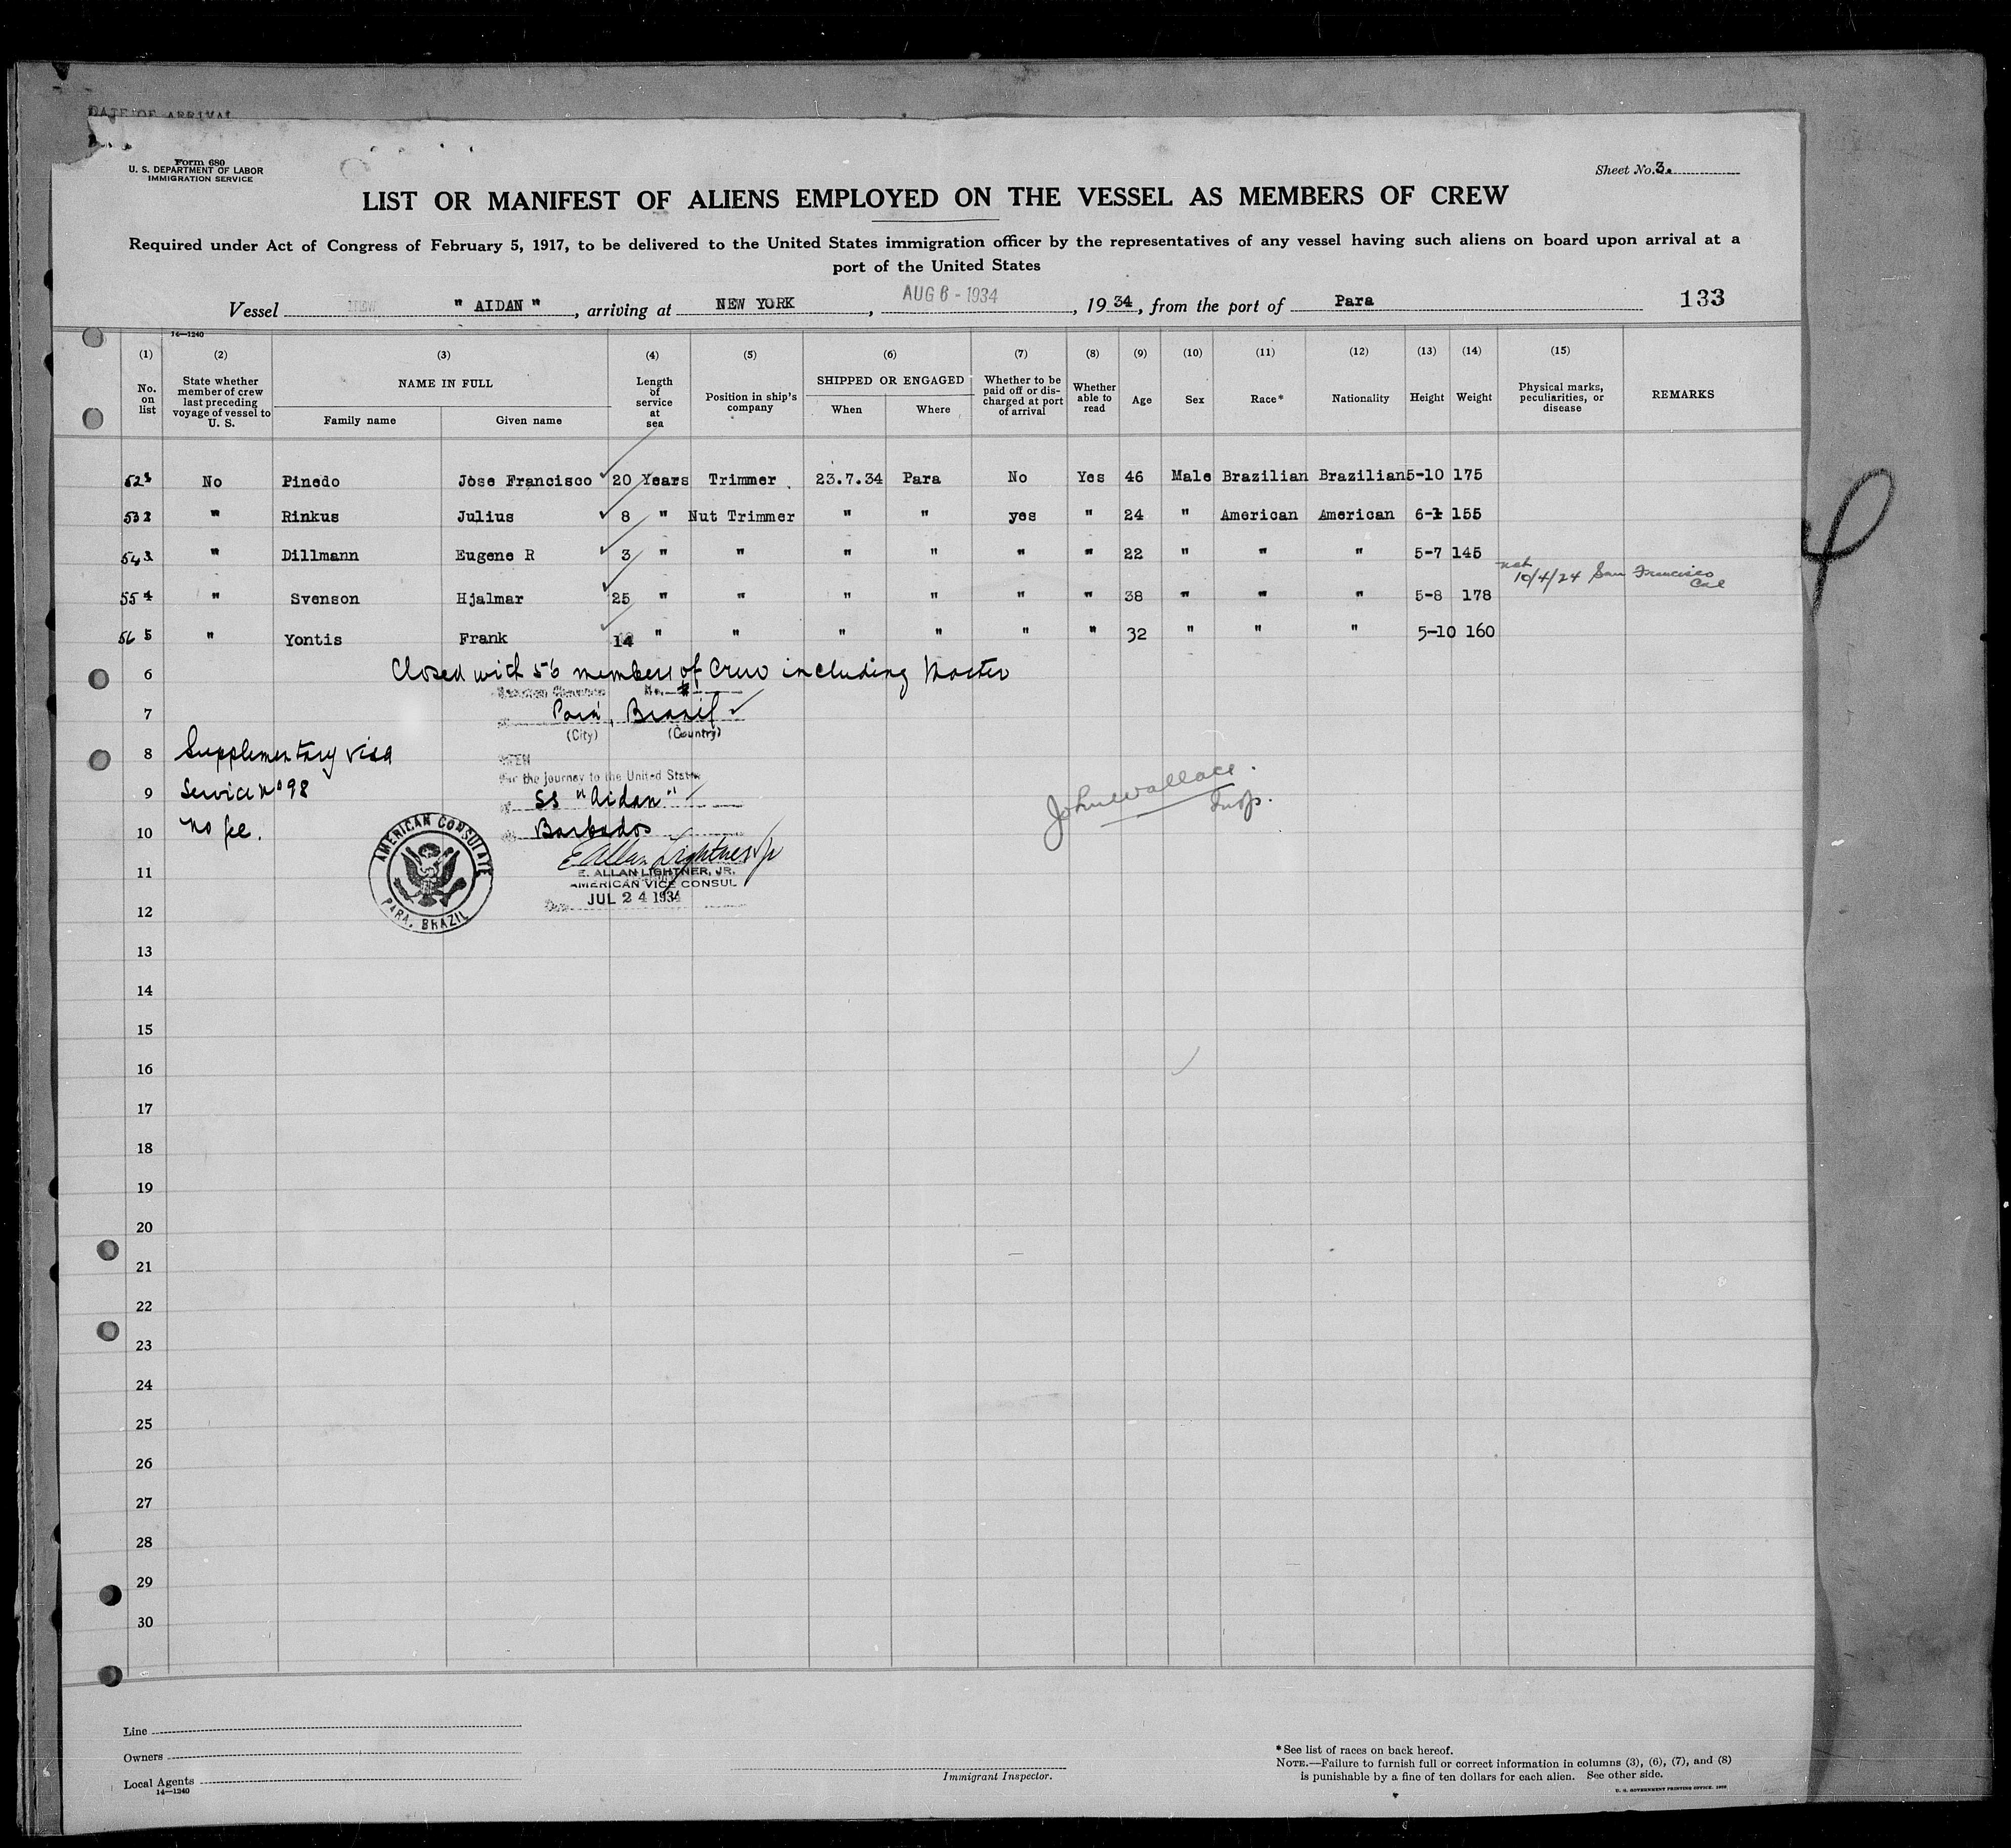 DATE OF ARRIVAL
Form 680
U. S. DEPARTMENT OF LABOR
IMMIGRATION SERVICE
Sheet No. 3.
LIST OR MANIFEST OF ALIENS EMPLOYED ON THE VESSEL AS MEMBERS OF CREW
Required under Act of Congress of February 5, 1917, to be delivered to the United States immigration officer by the representatives of any vessel having such aliens on board upon arrival at a
port of the United States
Vessel " AIDAN ", arriving at NEW YORK, AUG 6 - 1934, 1934, from the port of Para 133
14—1240
(1) (2) (3) (4) (5) (6) (7) (8) (9) (10) (11) (12) (13) (14) (15)
No. on list State whether member of crew last preceding voyage of vessel to U. S. NAME IN FULL Family name Given name Length of service at sea Position in ship's company SHIPPED OR ENGAGED When Where Whether to be paid off or discharged at port of arrival Whether able to read Age Sex Race* Nationality Height Weight Physical marks, peculiarities, or disease REMARKS
52 1 No Pinedo Jose Francisco 20 Years Trimmer 23.7.34 Para No Yes 46 Male Brazilian Brazilian 5-10 175
53 2 " Rinkus Julius 8 " Nut Trimmer " " yes " 24 " American American 6-1 155
54 3 " Dillmann Eugene R 3 " " " " " " 22 " " " 5-7 145
nat 10/4/24 San Francisco Cal
55 4 " Svenson Hjalmar 25 " " " " " " 38 " " " 5-8 178
56 5 " Yontis Frank 14 " " " " " " 32 " " " 5-10 160
6 Closed with 56 members of Crew including Master
No.
7 Pará, Brazil
(City) (Country)
8 Supplementary visa
SEEN
For the journey to the United States
9 Service No 98 SS "Aidan"
10 No fee. Barbados
John Wallace.
Insp.
E Allan Lightner Jr
11 E. ALLAN LIGHTNER, JR.
AMERICAN VICE CONSUL
JUL 24 1934
AMERICAN CONSULATE
PARA, BRAZIL
12
13
14
15
16
17
18
19
20
21
22
23
24
25
26
27
28
29
30
Line
Owners
Local Agents
14—1240
Immigrant Inspector.
*See list of races on back hereof.
NOTE.—Failure to furnish full or correct information in columns (3), (6), (7), and (8)
is punishable by a fine of ten dollars for each alien. See other side.
U. S. GOVERNMENT PRINTING OFFICE